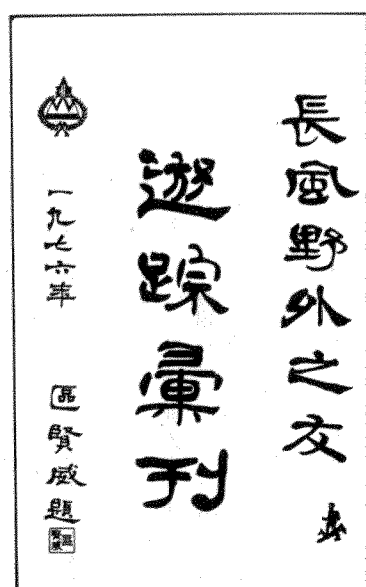 長風野外之友
遊踪彙刊
一九七六年
區賢威題